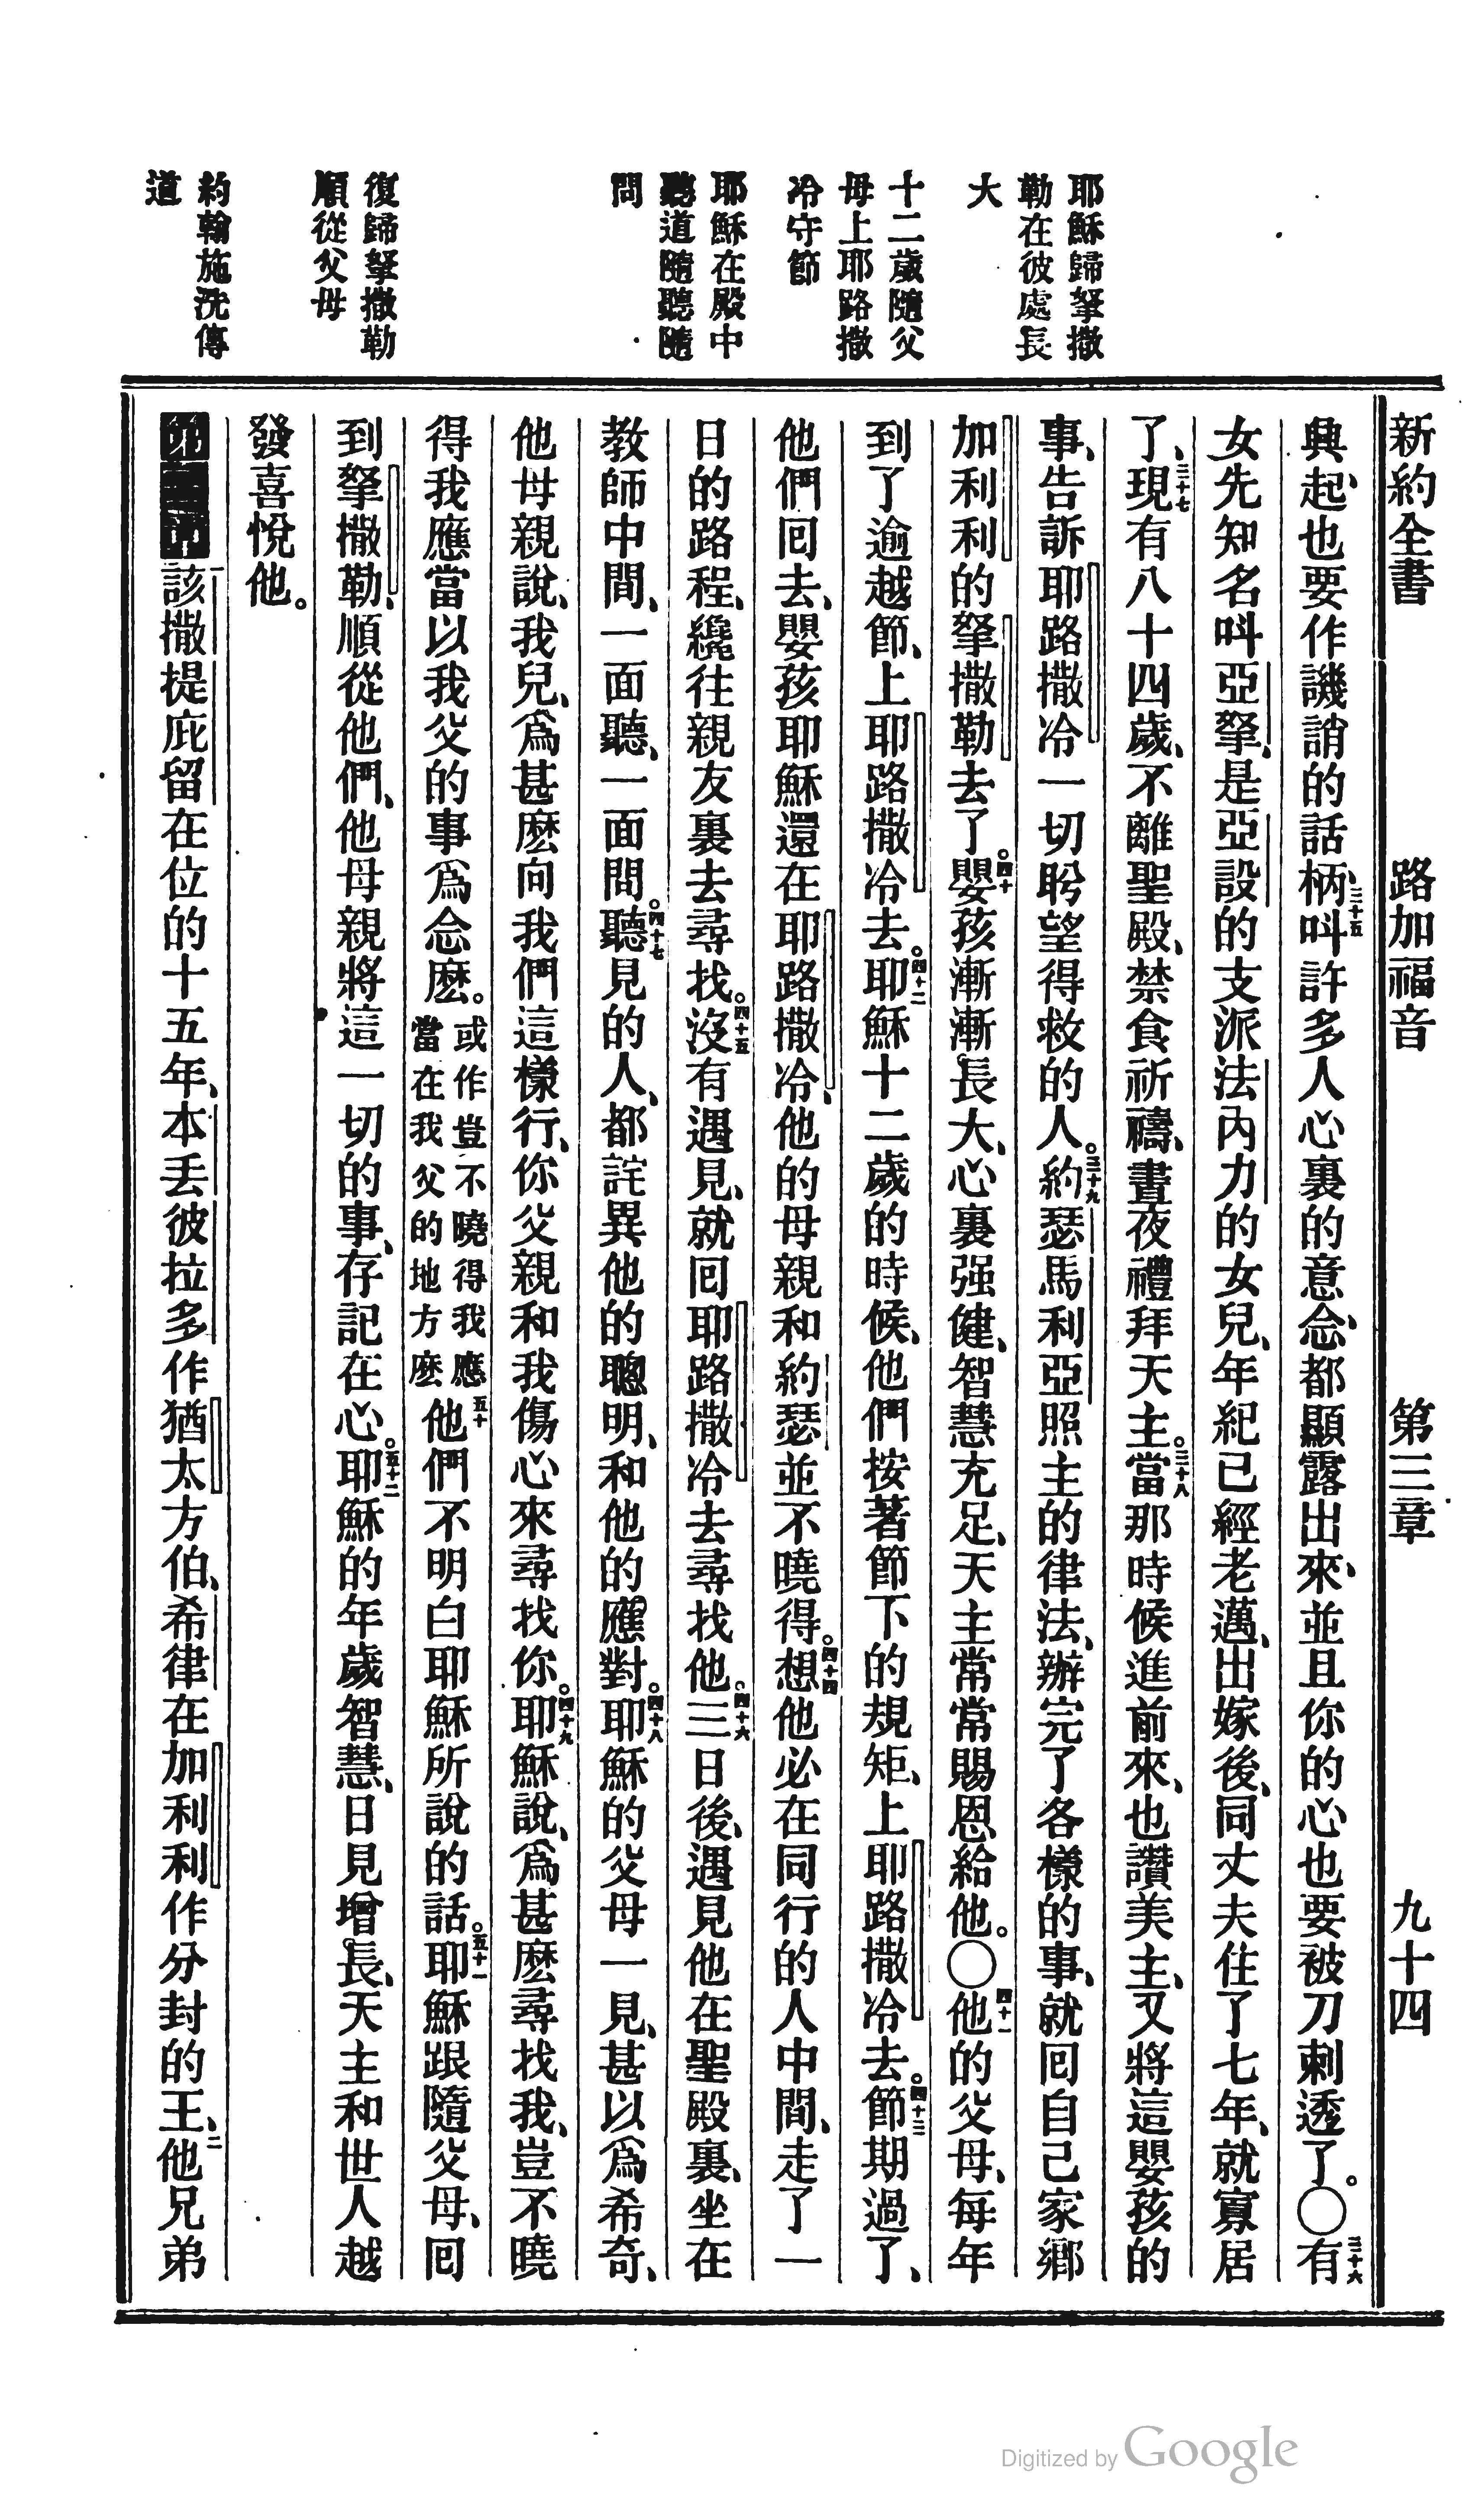 新約全書 路加福音 第三章 九十四
耶穌歸拏撒
勒在彼處長
大
十二歲隨父
母上耶路撒
冷守節
耶穌在殿中
聽道隨聽隨
問
復歸拏撒勒
順從父母
約翰施洗傳
道
興起、也要作譏誚的話柄、三十五叫許多人心裏的意念、都顯露出來、並且你的心也要被刀刺透了。〇三十六有
女先知名叫亞拏、是亞設的支派法內力的女兒、年紀已經老邁、出嫁後、同丈夫住了七年、就寡居
了、三十七現有八十四歲、不離聖殿、禁食祈禱、晝夜禮拜天主。三十八當那時候進前來、也讚美主、又將這嬰孩的
事、告訴耶路撒冷一切盼望得救的人。三十九約瑟馬利亞照主的律法、辦完了各樣的事、就回自己家鄉
加利利的拏撒勒去了。四十嬰孩漸漸長大、心裏强健、智慧充足、天主常常賜恩給他。〇四十一他的父母、每年
到了逾越節、上耶路撒冷去。四十二耶穌十二歲的時候、他們按著節下的規矩、上耶路撒冷去。四十三節期過了、
他們回去、嬰孩耶穌還在耶路撒冷、他的母親和約瑟並不曉得。四十四想他必在同行的人中間、走了一
日的路程、纔往親友裏去尋找。四十五沒有遇見、就回耶路撒冷去尋找他。四十六三日後、遇見他在聖殿裏、坐在
教師中間、一面聽、一面問。四十七聽見的人、都詫異他的聰明、和他的應對。四十八耶穌的父母一見、甚以爲希奇、
他母親說、我兒、爲甚麽向我們這樣行、你父親和我傷心來尋找你。四十九耶穌說、爲甚麽尋找我、豈不曉
得我應當以我父的事爲念麽。或作豈不曉得我應當在我父的地方麽五十他們不明白耶穌所說的話。五十一耶穌跟隨父母、回
到拏撒勒、順從他們、他母親將這一切的事、存記在心。五十二耶穌的年歲智慧、日見增長、天主和世人越
發喜悅他。
一該撒提庇留在位的十五年、本丢彼拉多作猶太方伯、希律在加利利作分封的王、二他兄弟
Digitized by Google